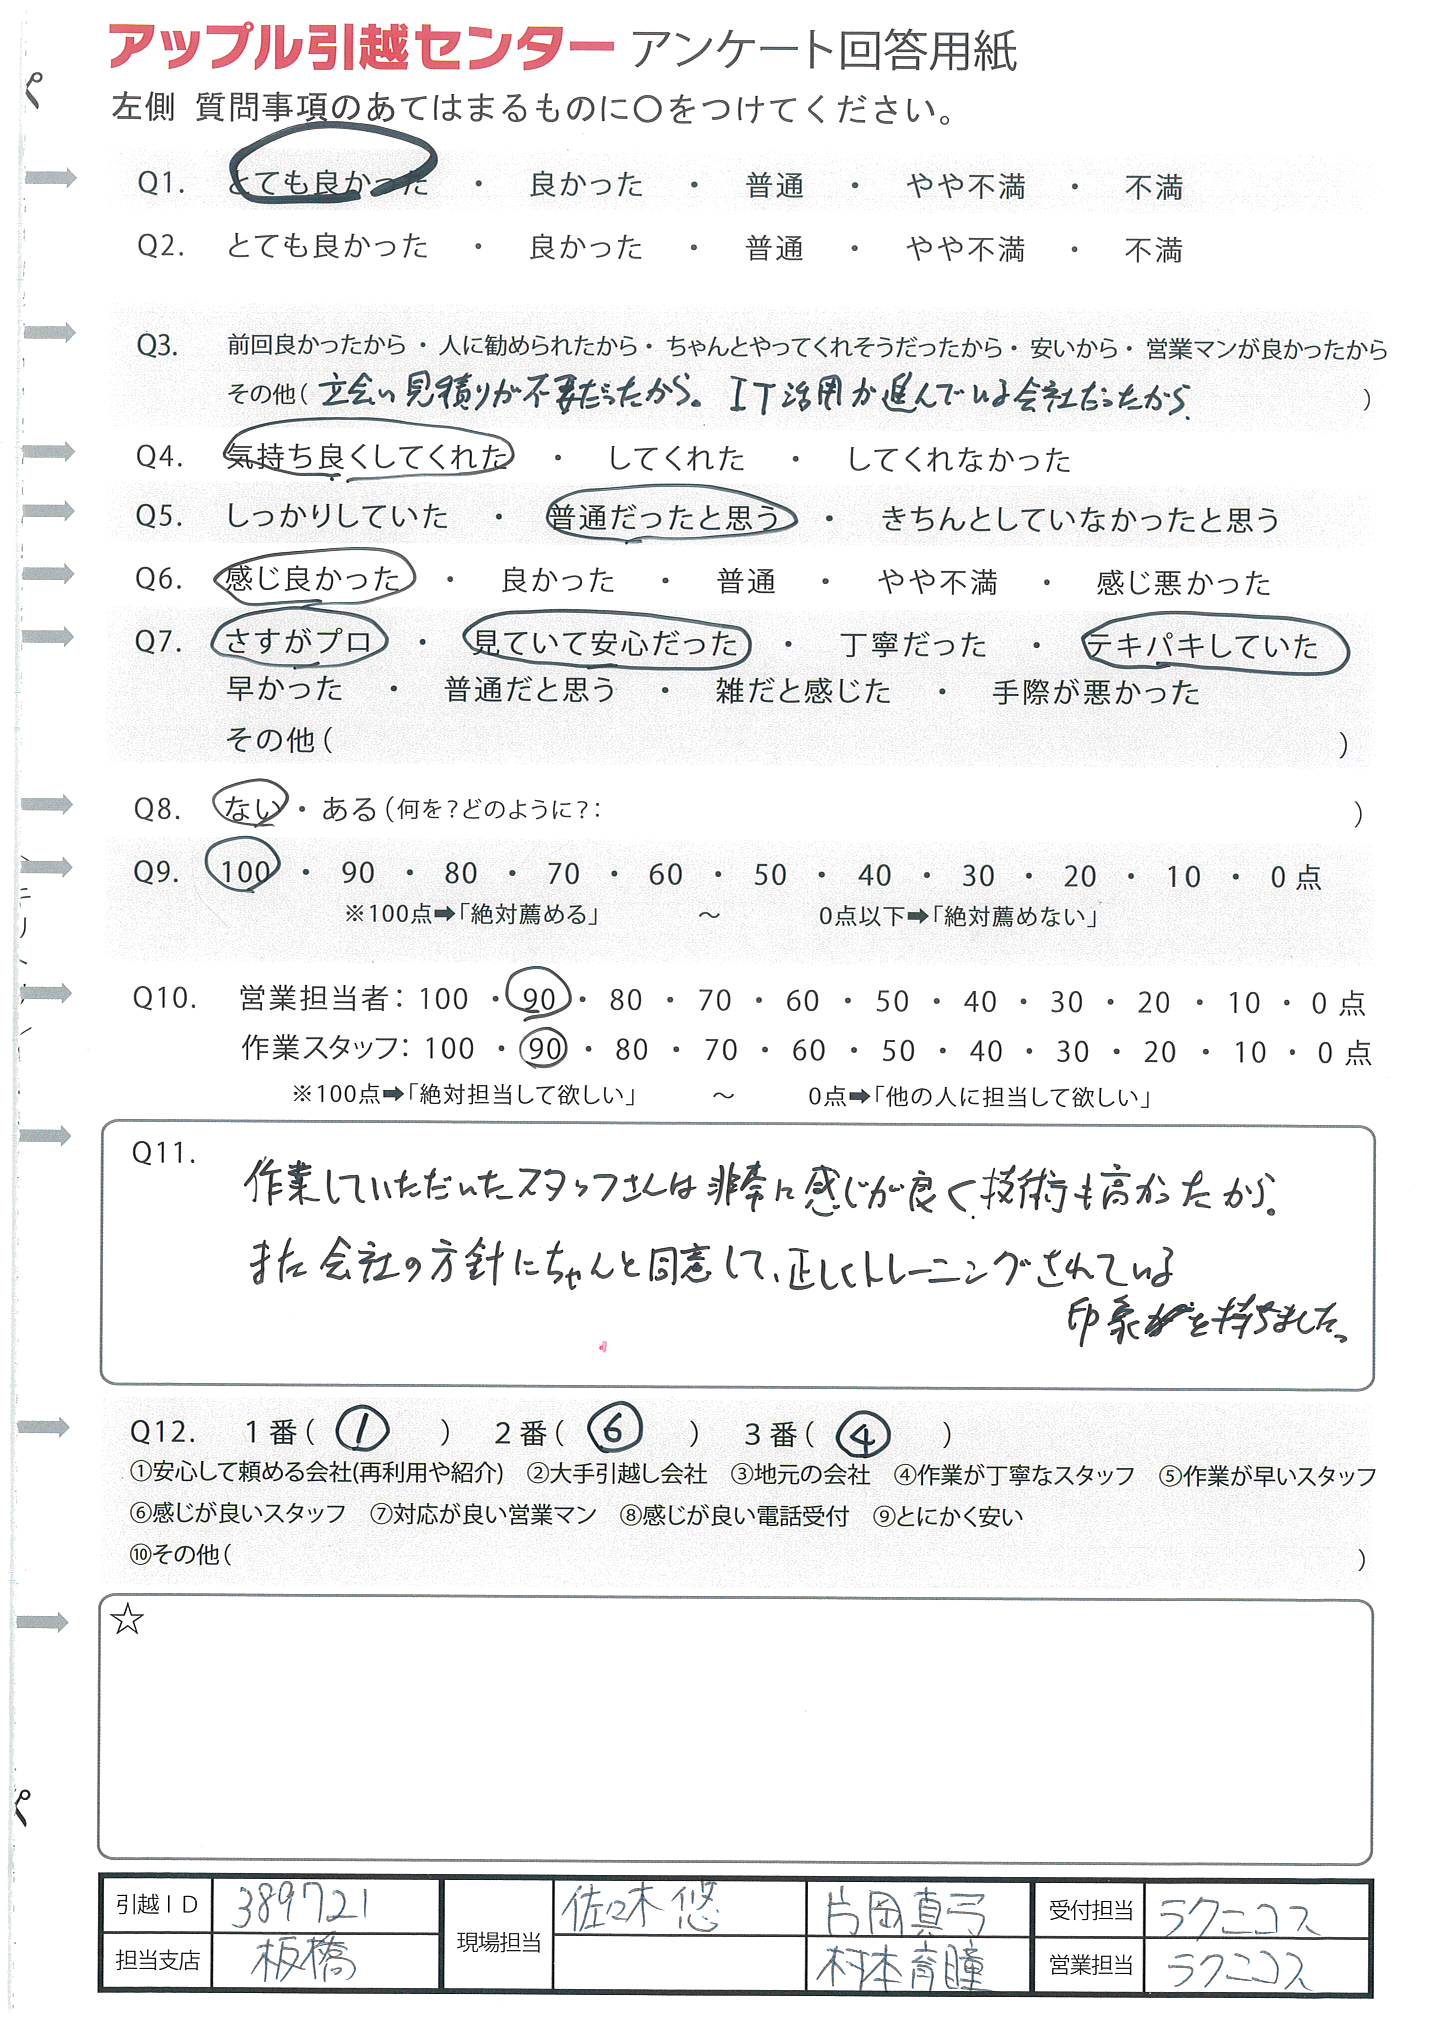 アップル引越センター アンケート回答用紙
左側 質問事項のあてはまるものに〇をつけてください。
Q1. とても良かった ・ 良かった ・ 普通 ・ やや不満 ・ 不満
Q2. とても良かった ・ 良かった ・ 普通 ・ やや不満 ・ 不満
Q3. 前回良かったから ・ 人に勧められたから ・ ちゃんとやってくれそうだったから ・ 安いから ・ 営業マンが良かったから
その他( 立会い見積りが不要だったから。IT活用が進んでいる会社だったから. )
Q4. 気持ち良くしてくれた ・ してくれた ・ してくれなかった
Q5. しっかりしていた ・ 普通だったと思う ・ きちんとしていなかったと思う
Q6. 感じ良かった ・ 良かった ・ 普通 ・ やや不満 ・ 感じ悪かった
Q7. さすがプロ ・ 見ていて安心だった ・ 丁寧だった ・ テキパキしていた
早かった ・ 普通だと思う ・ 雑だと感じた ・ 手際が悪かった
その他( )
Q8. ない ・ ある(何を?どのように?: )
Q9. 100 ・ 90 ・ 80 ・ 70 ・ 60 ・ 50 ・ 40 ・ 30 ・ 20 ・ 10 ・ 0 点
※100点➡「絶対薦める」 ～ 0点以下➡「絶対薦めない」
Q10. 営業担当者: 100 ・ 90 ・ 80 ・ 70 ・ 60 ・ 50 ・ 40 ・ 30 ・ 20 ・ 10 ・ 0 点
作業スタッフ: 100 ・ 90 ・ 80 ・ 70 ・ 60 ・ 50 ・ 40 ・ 30 ・ 20 ・ 10 ・ 0 点
※100点➡「絶対担当して欲しい」 ～ 0点➡「他の人に担当して欲しい」
Q11.
作業していただいたスタッフさんは非常に感じが良く、技術も高かったから。
また会社の方針にちゃんと同意して、正しくトレーニングされている
印象を持ちました。
Q12. 1番( ① ) 2番( ⑥ ) 3番( ④ )
①安心して頼める会社(再利用や紹介) ②大手引越し会社 ③地元の会社 ④作業が丁寧なスタッフ ⑤作業が早いスタッフ
⑥感じが良いスタッフ ⑦対応が良い営業マン ⑧感じが良い電話受付 ⑨とにかく安い
⑩その他( )
☆
引越ID 389721 現場担当 佐々木 悠 片岡真弓 受付担当 ラクニコス
担当支店 板橋 村本育瞳 営業担当 ラクニコス